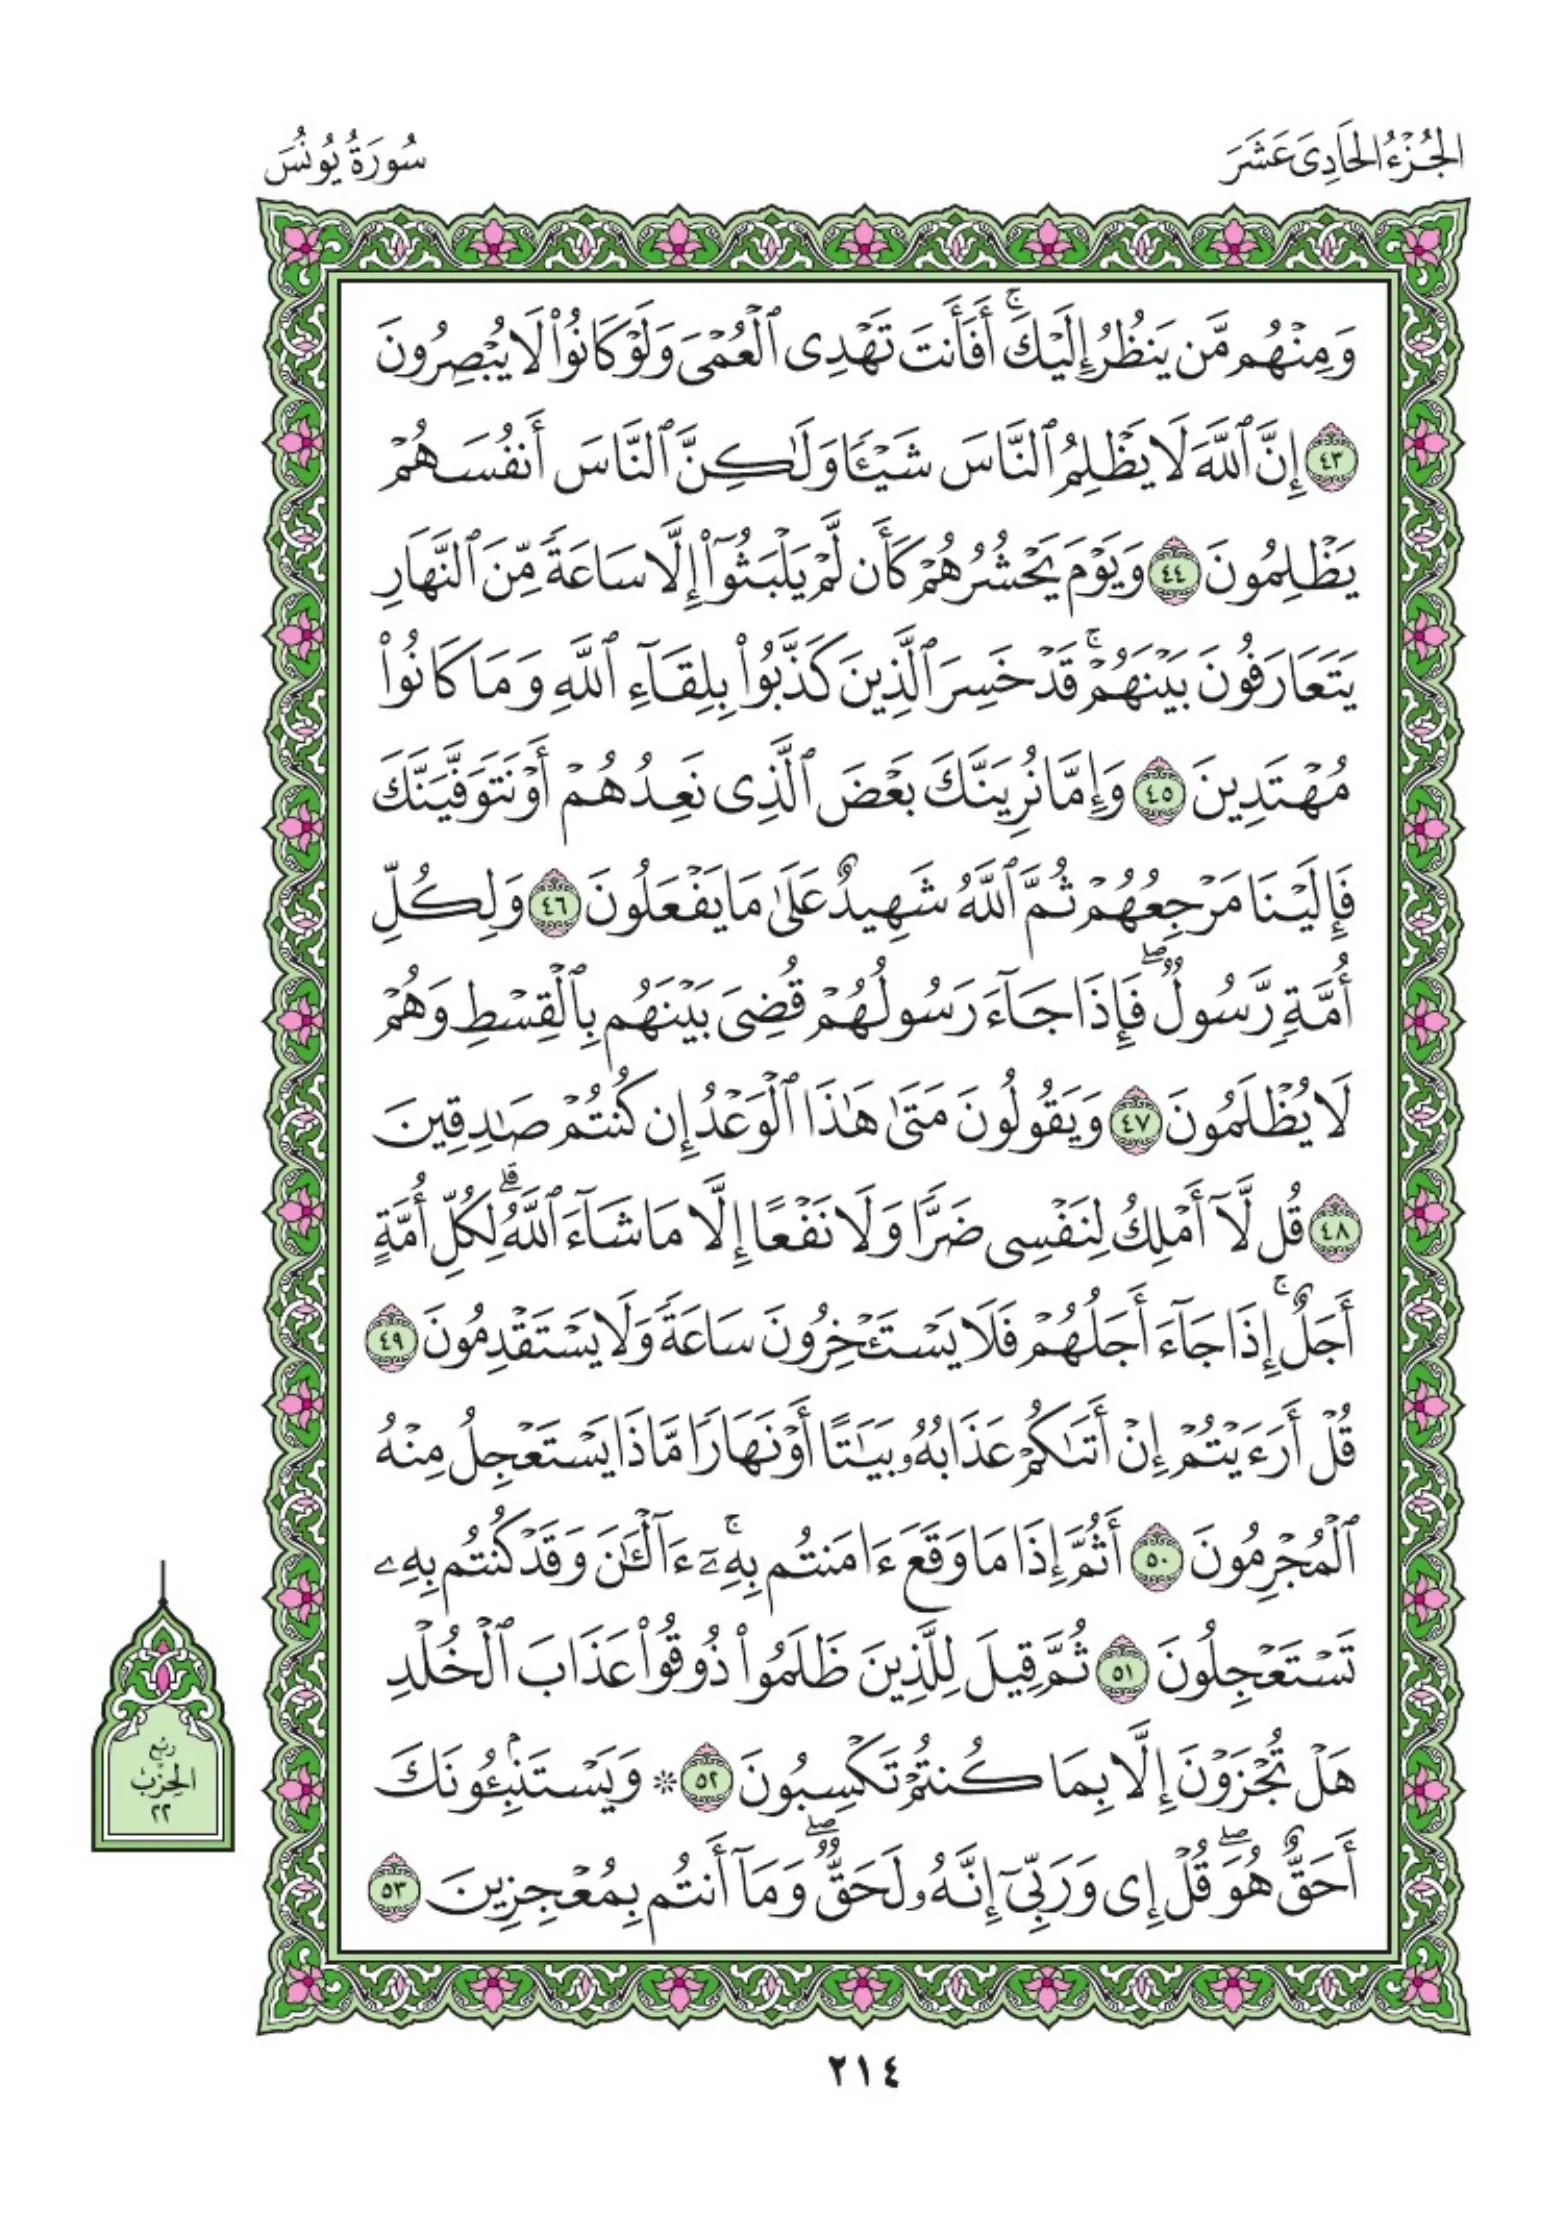 الجُزْءُ الحَادِىَ عَشَرَ
سُورَةُ يُونُسَ
وَمِنْهُم مَّن يَنظُرُ إِلَيْكَۚ أَفَأَنتَ تَهْدِى ٱلْعُمْىَ وَلَوْ كَانُوا۟ لَا يُبْصِرُونَ
٤٣ إِنَّ ٱللَّهَ لَا يَظْلِمُ ٱلنَّاسَ شَيْـًٔا وَلَـٰكِنَّ ٱلنَّاسَ أَنفُسَهُمْ
يَظْلِمُونَ ٤٤ وَيَوْمَ يَحْشُرُهُمْ كَأَن لَّمْ يَلْبَثُوٓا۟ إِلَّا سَاعَةً مِّنَ ٱلنَّهَارِ
يَتَعَارَفُونَ بَيْنَهُمْۚ قَدْ خَسِرَ ٱلَّذِينَ كَذَّبُوا۟ بِلِقَآءِ ٱللَّهِ وَمَا كَانُوا۟
مُهْتَدِينَ ٤٥ وَإِمَّا نُرِيَنَّكَ بَعْضَ ٱلَّذِى نَعِدُهُمْ أَوْ نَتَوَفَّيَنَّكَ
فَإِلَيْنَا مَرْجِعُهُمْ ثُمَّ ٱللَّهُ شَهِيدٌ عَلَىٰ مَا يَفْعَلُونَ ٤٦ وَلِكُلِّ
أُمَّةٍ رَّسُولٌۖ فَإِذَا جَآءَ رَسُولُهُمْ قُضِىَ بَيْنَهُم بِٱلْقِسْطِ وَهُمْ
لَا يُظْلَمُونَ ٤٧ وَيَقُولُونَ مَتَىٰ هَـٰذَا ٱلْوَعْدُ إِن كُنتُمْ صَـٰدِقِينَ
٤٨ قُل لَّآ أَمْلِكُ لِنَفْسِى ضَرًّا وَلَا نَفْعًا إِلَّا مَا شَآءَ ٱللَّهُۗ لِكُلِّ أُمَّةٍ
أَجَلٌۚ إِذَا جَآءَ أَجَلُهُمْ فَلَا يَسْتَـْٔخِرُونَ سَاعَةً وَلَا يَسْتَقْدِمُونَ ٤٩
قُلْ أَرَءَيْتُمْ إِنْ أَتَىٰكُمْ عَذَابُهُۥ بَيَـٰتًا أَوْ نَهَارًا مَّاذَا يَسْتَعْجِلُ مِنْهُ
ٱلْمُجْرِمُونَ ٥٠ أَثُمَّ إِذَا مَا وَقَعَ ءَامَنتُم بِهِۦٓۚ ءَآلْـَٔـٰنَ وَقَدْ كُنتُم بِهِۦ
تَسْتَعْجِلُونَ ٥١ ثُمَّ قِيلَ لِلَّذِينَ ظَلَمُوا۟ ذُوقُوا۟ عَذَابَ ٱلْخُلْدِ
هَلْ تُجْزَوْنَ إِلَّا بِمَا كُنتُمْ تَكْسِبُونَ ٥٢ ۞ وَيَسْتَنۢبِـُٔونَكَ
أَحَقٌّ هُوَۖ قُلْ إِى وَرَبِّىٓ إِنَّهُۥ لَحَقٌّۖ وَمَآ أَنتُم بِمُعْجِزِينَ ٥٣
رُبع
الحِزْب
٢٢
٢١٤